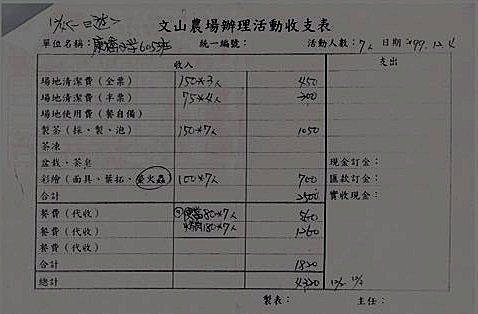 文山農場辦理活動收支表
單位名稱：康橋 605班 統一編號： 活動人數：7人 日期：99.12.4
收入 支出
場地清潔費（全票） 150*3人 450
場地清潔費（半票） 75*4人 300
場地使用費（餐自備）
製茶（採、製、泡） 150*7人 1050
茶凍
盆栽、茶皂 現金訂金：
彩繪（面具、葉拓、螢火蟲） 100*7人 700 匯款訂金：
合計 2500 實收現金：
餐費（代收） 便當80*7人 560
餐費（代收） 烤肉180*7人 1260
餐費（代收）
合計 1820
總計 4320
製表： 主任：